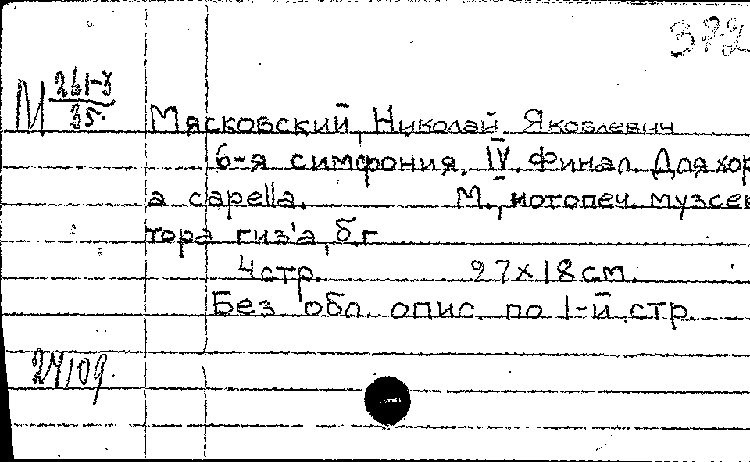 372
М 261-3
35.
Мясковский, Николай Яковлевич
6-я симфония. IV. Финал. Для хор
a capella. М., нотопеч. музсек
тора гиз'а, б.г
4 стр. 27х18 см.
Без обл. опис. по 1-й стр.
27109.